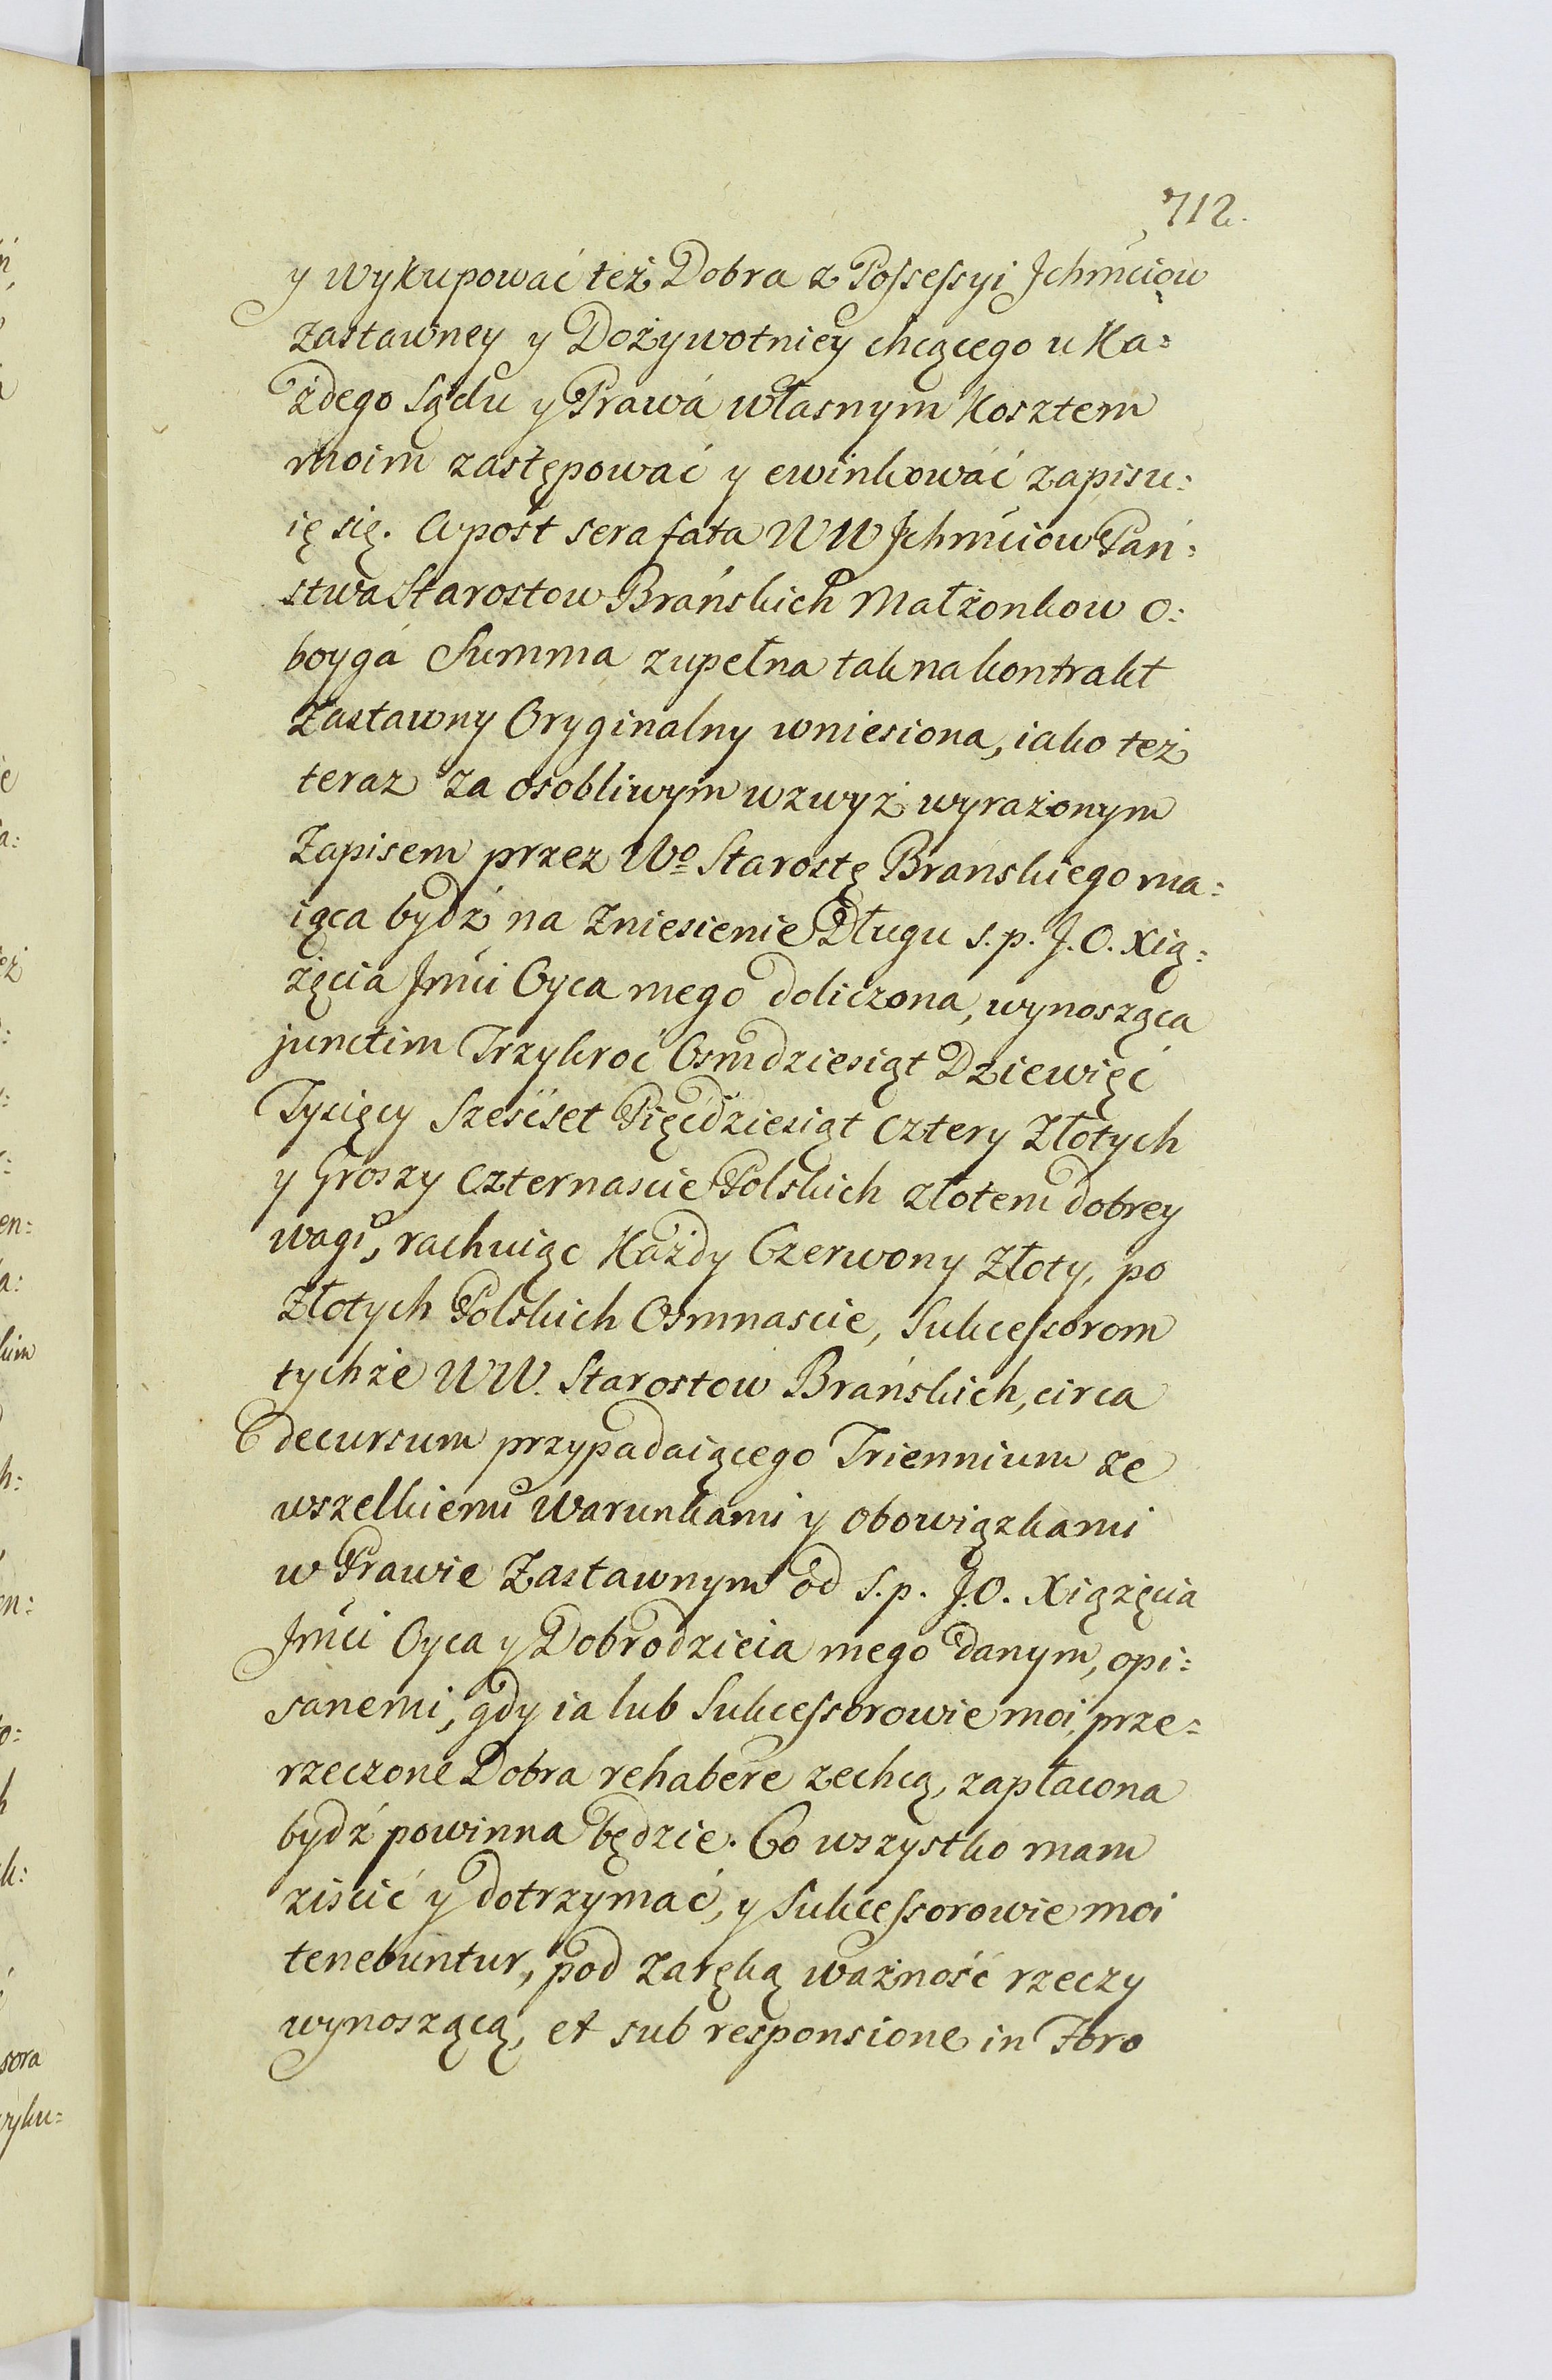 712.
y wykupować też Dobra z Possessyi Jchmciow
zastawney y Dożywotniey chcącego u Ka=
żdego Sądu y Prawá własnym Kosztem
moim zastępować y ewinkowáć zapisu=
ię się. A post sera fata WW Jchmciow Pań=
stwa Starostow Brańskich Małżonkow o=
boyga Summa zupełna tak na kontrakt
Zastawny Oryginalny wniesiona, iako też
teraz za osobliwym wzwyż wyrażonym
Zapisem przez Wo Starostę Branskiego ma=
iąca bydź na zniesienie Długu s.p. J.O. Xią=
żęcia Jmci Oyca mego doliczona, wynosząca
junctim Trzykroć Osmdziesiąt Dziewięć
Tysięcy Sześćset Pięćdziesiąt cztery Złotych
y Groszy czternascie Polskich złotem dobrey
wagi, rachuiąc Każdy Czerwony Złoty, po
Złotych Polskich Osmnascie, Sukcessorom
tychże WW. Starostow Brańskich, circa
decursum przypadaiącego Triennium ze
wszelkiemi Warunkami y obowiązkami
w Prawie Zastawnym od s.p. J.O. Xiążęcia
Jmci Oyca y Dobrodzieia mego danym, opi=
sanemi, gdy ia lub Sukcessorowie moi, prze=
rzeczone Dobra rehabere zechcą, zapłacona
bydź powinna będzie. Co wszystko mam
ziscić y dotrzymać, y Sukcessorowie moi
tenebuntur, pod zaręką ważność rzeczy
wynoszącą, et sub responsione in Foro